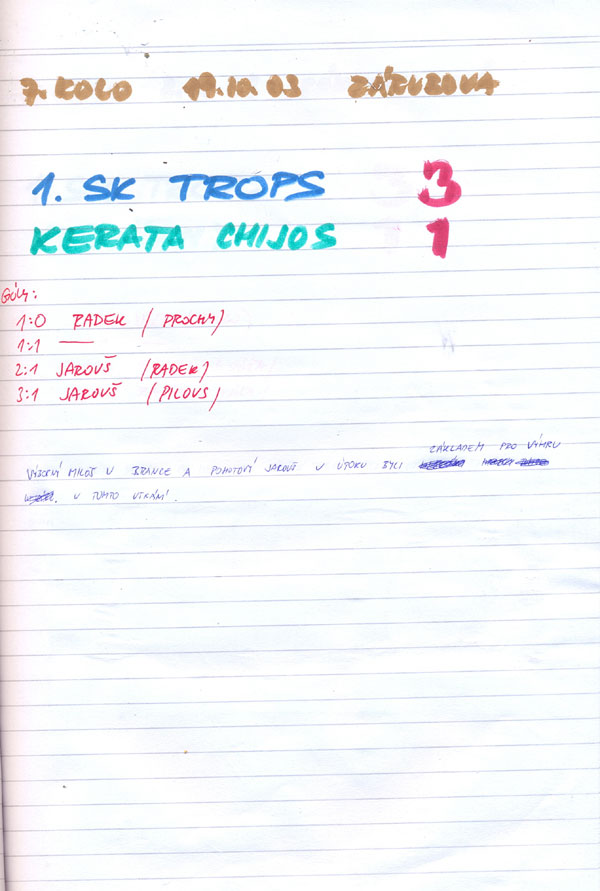 7. KOLO 19.10.03 ZÁRUBOVA
1. SK TROPS 3
KERATA CHIJOS 1
GÓLY:
1:0 RADEK (PROCHY)
1:1 —
2:1 JAROUŠ (RADEK)
3:1 JAROUŠ (PILOUS)
ZÁKLADEM PRO VÝHRU
VÝBORNÝ MILOŠ V BRANCE A POHOTOVÝ JAROUŠ V ÚTOKU BYLI
V TOMTO UTKÁNÍ.